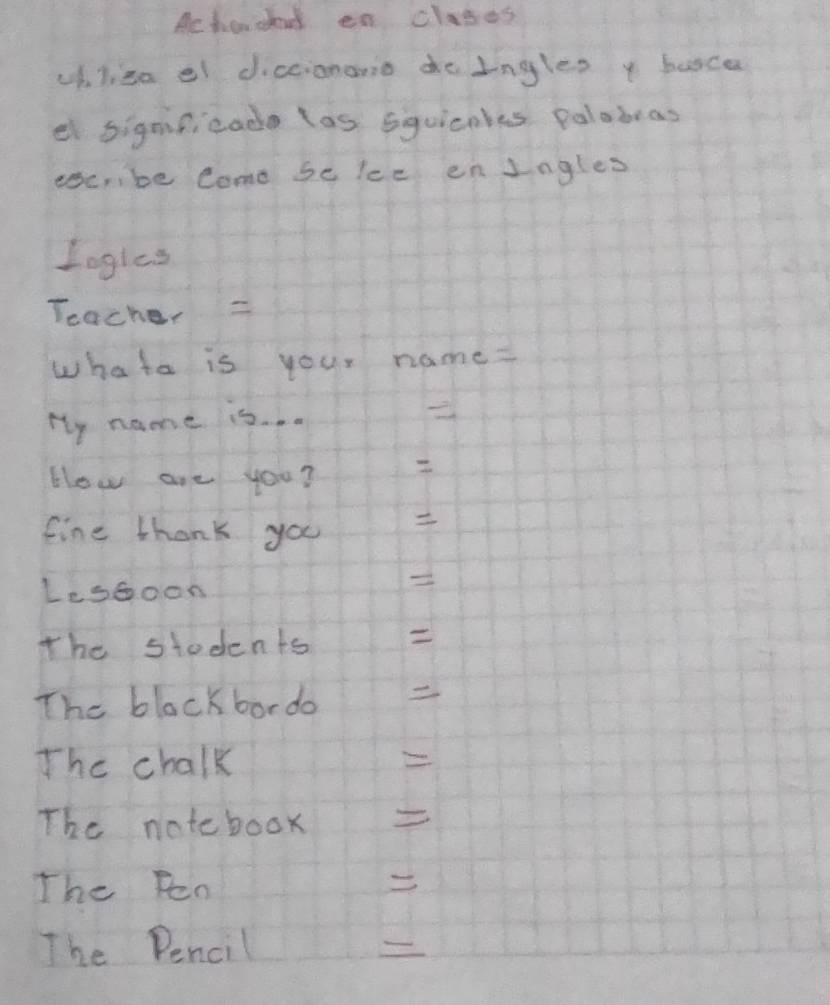 Actividad en clases
utiliza el diccionario de Ingles y busca
el significado las siguientes palabras
escribe como se lee en Ingles
Ingles
Teacher =
whata is your name =
My name is... =
How are you? =
fine thank you =
Lessoon =
the students =
The blackbordo =
The chalk =
The notebook =
The Pen =
The Pencil =